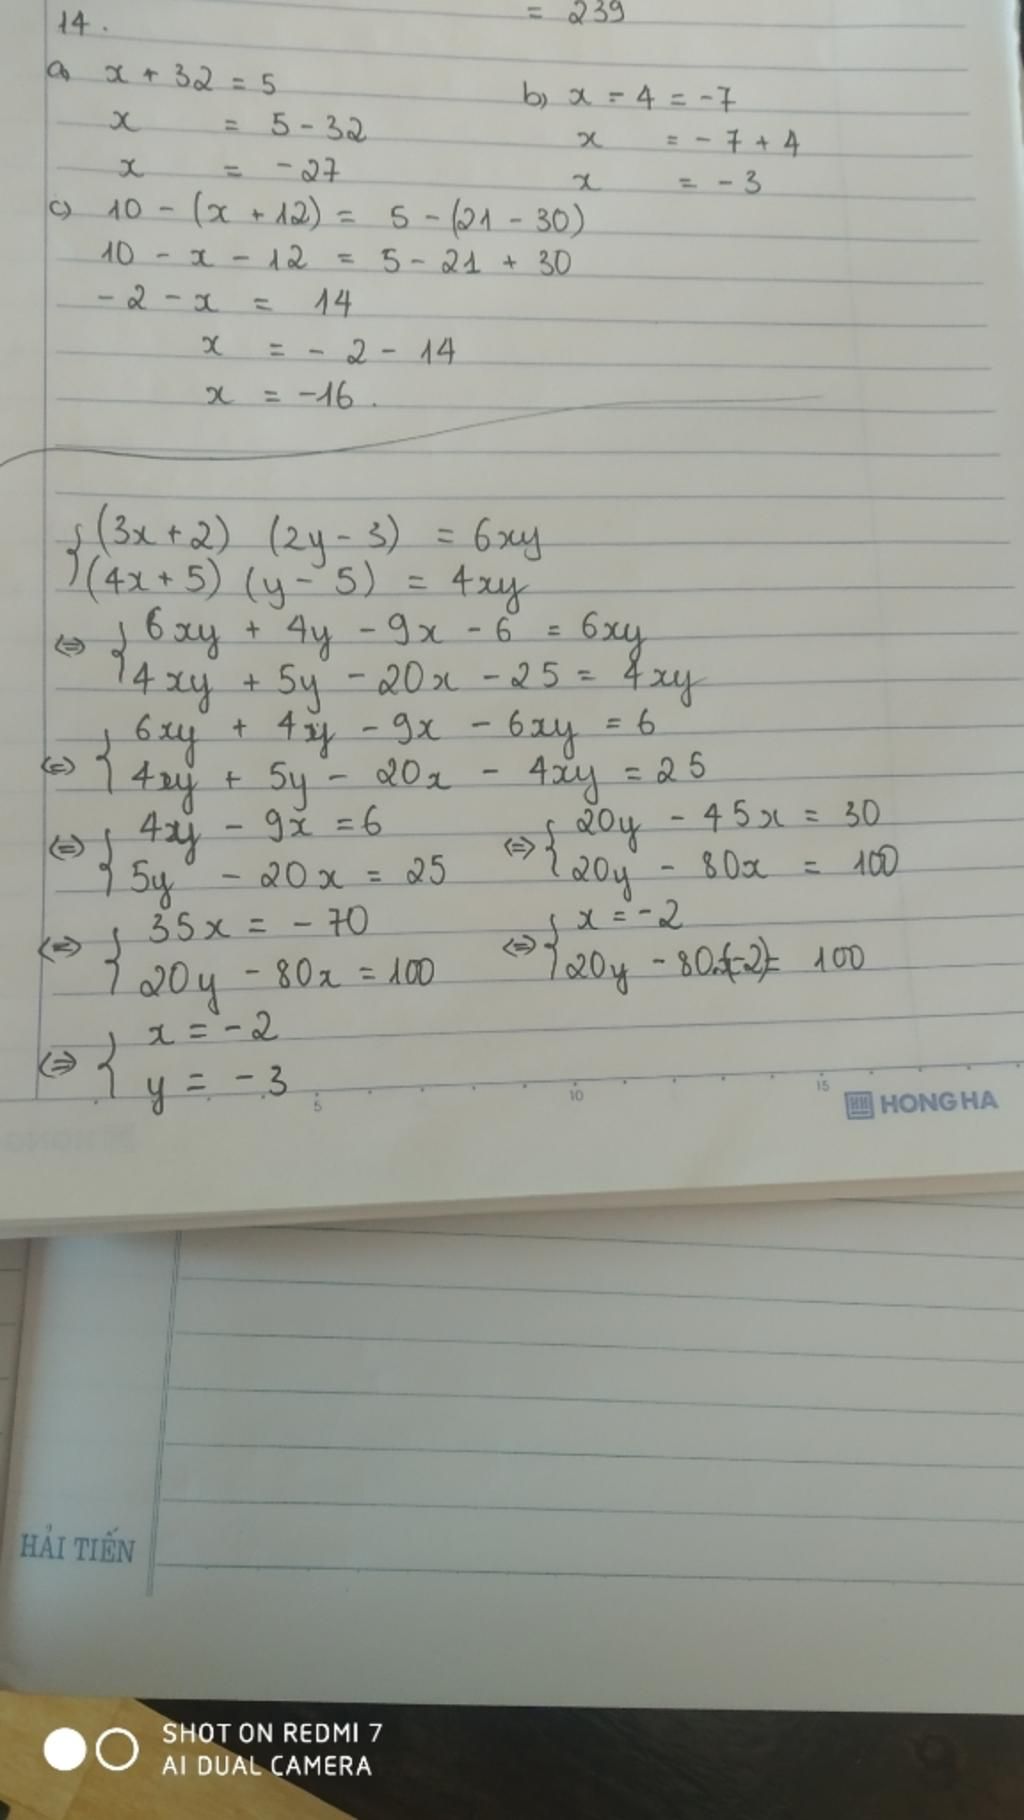 = 239
14.
a) x + 32 = 5
x = 5 - 32
x = -27
b) x - 4 = -7
x = -7 + 4
x = -3
c) 10 - (x + 12) = 5 - (21 - 30)
10 - x - 12 = 5 - 21 + 30
-2 - x = 14
x = -2 - 14
x = -16.
{ (3x + 2) (2y - 3) = 6xy
(4x + 5) (y - 5) = 4xy
⇔ { 6xy + 4y - 9x - 6 = 6xy
4xy + 5y - 20x - 25 = 4xy
⇔ { 6xy + 4y - 9x - 6xy = 6
4xy + 5y - 20x - 4xy = 25
⇔ { 4y - 9x = 6
5y - 20x = 25
⇔ { 20y - 45x = 30
20y - 80x = 100
⇔ { 35x = -70
20y - 80x = 100
⇔ { x = -2
20y - 80.(-2) = 100
⇔ { x = -2
y = -3
5 10 15
HONG HA
HẢI TIẾN
SHOT ON REDMI 7
AI DUAL CAMERA